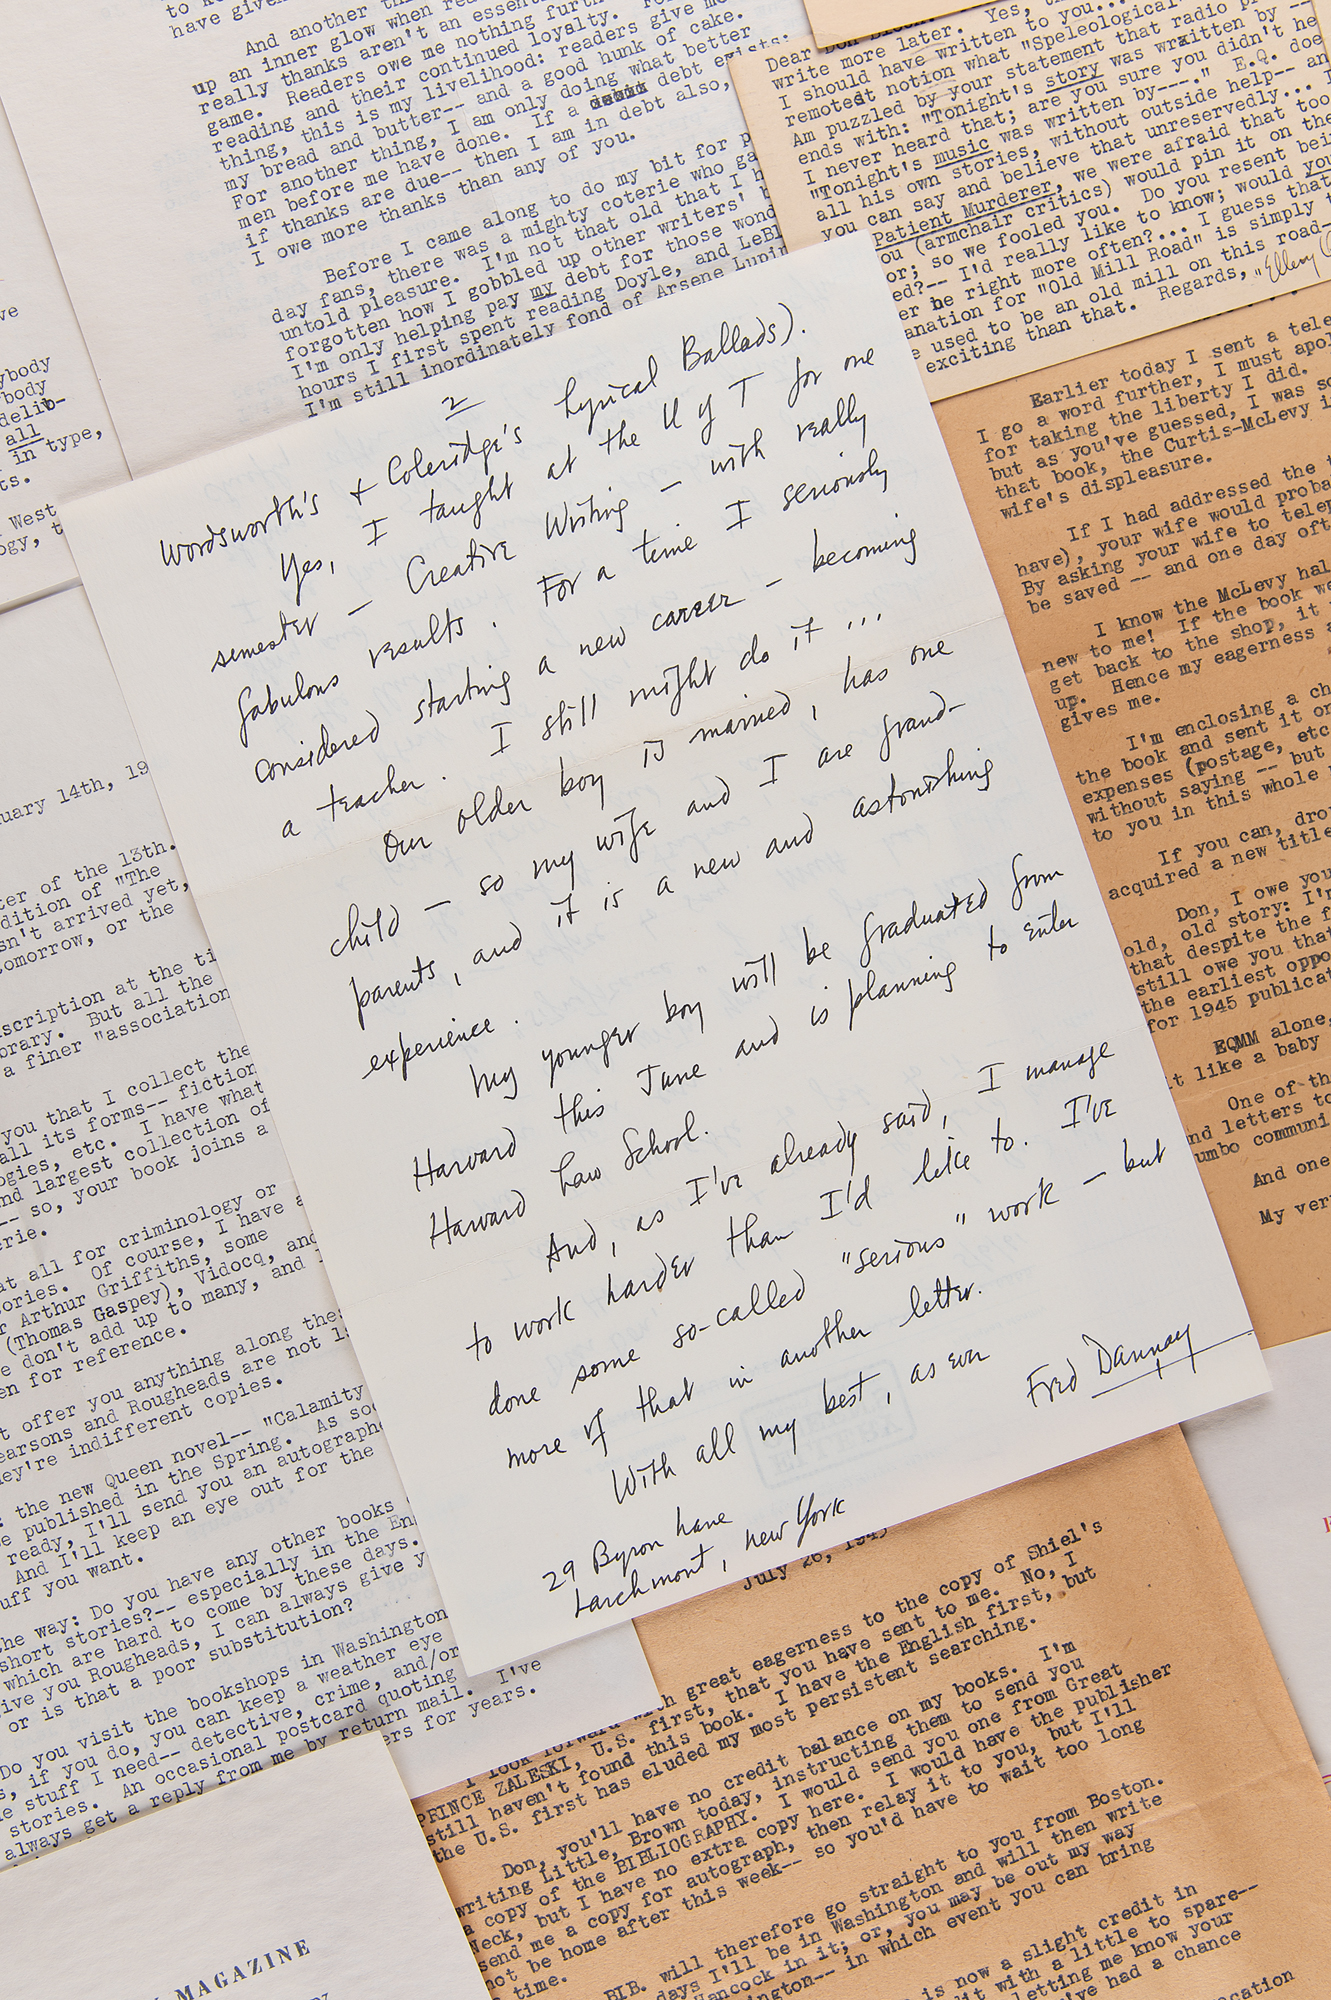 to k
have given
And another thi
up an inner glow when rea
really thanks aren't an essent
game. Readers owe me nothing furth
reading and their continued loyalty. Fo
thing, this is my livelihood: readers give me
my bread and butter-- and a good hunk of cake.
For another thing, I am only doing what better
men before me have done. If a debt exists:
if thanks are due-- then I am in debt also,
I owe more thanks than any of you.
Before I came along to do my bit for p
day fans, there was a mighty coterie who ga
untold pleasure. I'm not that old that I h
forgotten how I gobbled up other writers' b
I'm only helping pay my debt for those wond
hours I first spent reading Doyle, and LeBl
I'm still inordinately fond of Arsene Lupin
Yes, t
write more later.
I should have written to you...
remotest notion what "Speleological
Am puzzled by your statement that radio pr
ends with: "Tonight's story was wraitten by --
I never heard that; are you sure you didn't he
"Tonight's music was written by---." E.Q. doe
all his own stories, without outside help-- an
you can say and believe that unreservedly... I
Patient Murderer, we were afraid that too
ou (armchair critics) would pin it on the
or; so we fooled you. Do you resent bei
ed?-- I'd really like to know; would you
er be right more often?... I guess that
anation for "Old Mill Road" is simply t
e used to be an old mill on this road--
exciting than that. Regards, "Ellery Q
ve
ybody
body
delib-
all
in type,
ts.
West
ogy, t
2
Wordsworth's + Coleridge's Lyrical Ballads).
Yes, I taught at the U of T for one
semester — Creative Writing — with really
fabulous results. For a time I seriously
considered starting a new career — becoming
a teacher. I still might do it ...
Our older boy is married, has one
child — so my wife and I are grand-
parents, and it is a new and astonishing
experience.
My younger boy will be graduated from
Harvard this June and is planning to enter
Harvard Law School.
And, as I've already said, I manage
to work harder than I'd like to. I've
done some so-called "serious" work — but
more of that in another letter.
With all my best, as ever
Fred Dannay
29 Byron Lane
Larchmont, New York
Earlier today I sent a tele
I go a word further, I must apol
for taking the liberty I did.
but as you've guessed, I was so
that book, the Curtis-McLevy i
wife's displeasure.
If I had addressed the t
have), your wife would proba
By asking your wife to telep
be saved -- and one day oft
I know the McLevy hal
new to me! If the book we
get back to the shop, it
up. Hence my eagerness a
gives me.
I'm enclosing a ch
the book and sent it on
expenses (postage, etc
without saying -- but
to you in this whole
If you can, dro
acquired a new title
Don, I owe you
old, old story: I'm
that despite the f
still owe you that
the earliest oppo
for 1945 publicat
EQMM alone,
it like a baby
One of th
nd letters to
umbo communi
And one
My very
uary 14th, 19
ter of the 13th.
dition of "The
sn't arrived yet,
tomorrow, or the
scription at the ti
brary. But all the
a finer "association
you that I collect the
all its forms-- fiction
ogies, etc. I have what
nd largest collection of
-- so, your book joins a
erie.
at all for criminology or
tories. Of course, I have a
r Arthur Griffiths, some
(Thomas Gaspey), Vidocq, and
e don't add up to many, and I
en for reference.
t offer you anything along thes
earsons and Rougheads are not l
ey're indifferent copies.
the new Queen novel-- "Calamity
e published in the Spring. As soo
ready, I'll send you an autographe
And I'll keep an eye out for the
uff you want.
the way: Do you have any other books
short stories?-- especially in the En
which are hard to come by these days.
ive you Rougheads, I can always give y
or is that a poor substitution?
Do you visit the bookshops in Washington
s, if you do, you can keep a weather eye
e stuff I need-- detective, crime, and/or
stories. An occasional postcard quoting
always get a reply from me by return mail. I've
ers for years.
July 26, 1945
I look forward with great eagerness to the copy of Shiel's
PRINCE ZALESKI, U.S. first, that you have sent to me. No, I
still haven't found this book. I have the English first, but
the U.S. first has eluded my most persistent searching.
Don, you'll have no credit balance on my books. I'm
writing Little, Brown today, instructing them to send you
a copy of the BIBLIOGRAPHY. I would send you one from Great
Neck, but I have no extra copy here. I would have the publisher
send me a copy for autograph, then relay it to you, but I'll
not be home after this week-- so you'd have to wait too long
time.
BIB. will therefore go straight to you from Boston.
days I'll be in Washington and will then write
Hancock in it; or, you may be out my way
ngton-- in which event you can bring
is now a slight credit in
dit with a little to spare--
letting me know your
've had a chance
ocation
MAGAZINE